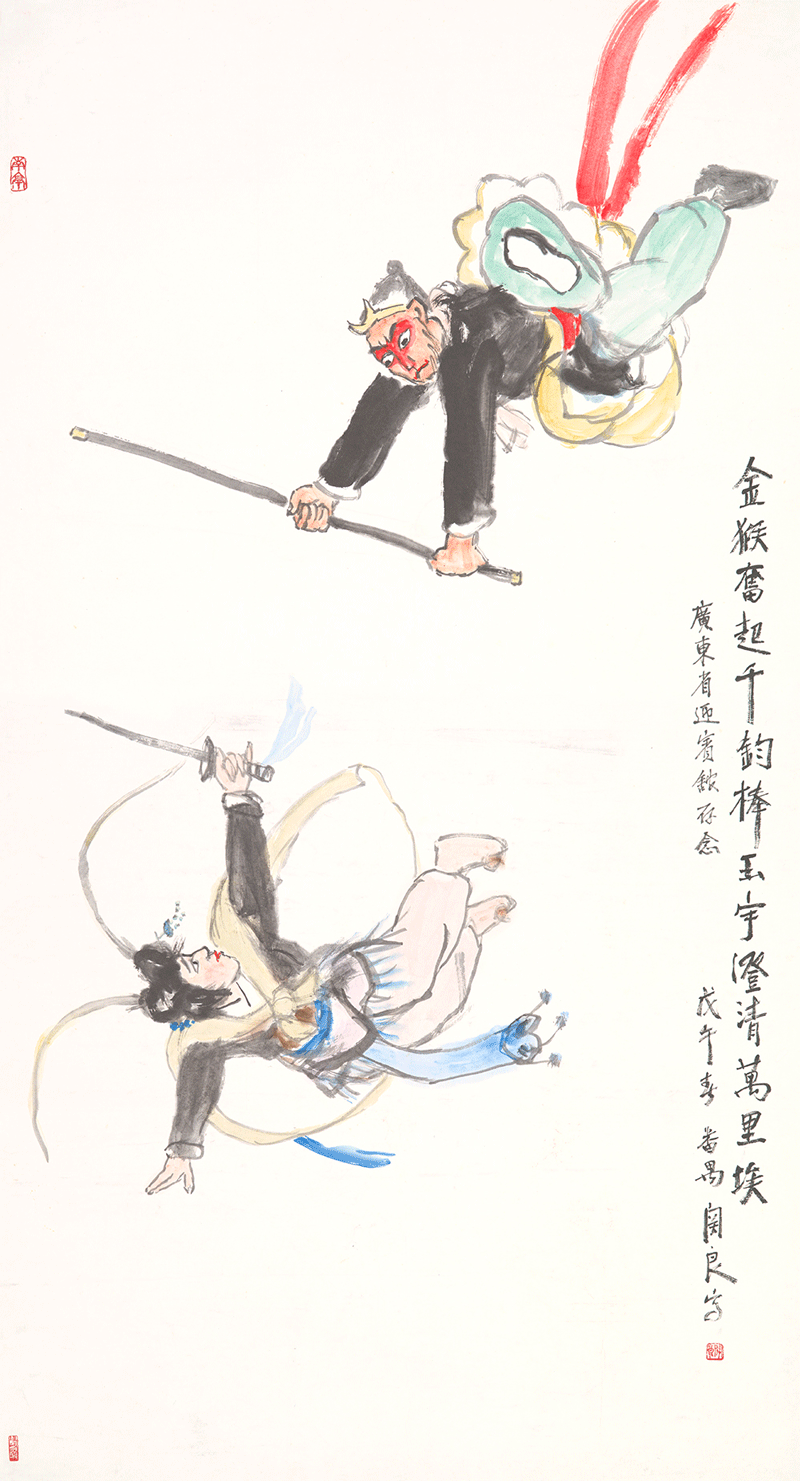 金猴奮起千鈞棒玉宇澄清萬里埃
廣東省迎賓舘存念
戊午春 番禺関良写
南亭